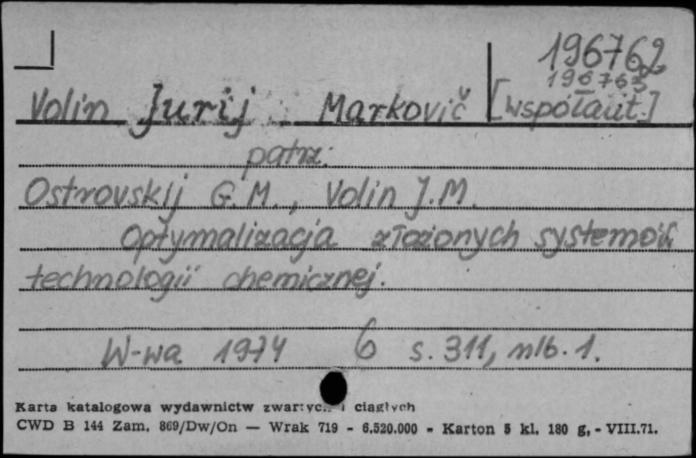 196762
196763
Volin Jurij Markovič [współaut.]
patrz:
Ostrovskij G.M., Volin J.M.
Optymalizacja złożonych systemów
technologii chemicznej.
W-wa 1974 6 s. 311, nlb. 1.
Karta katalogowa wydawnictw zwartych i ciągłych
CWD B 144 Zam. 869/Dw/On — Wrak 719 - 6.520.000 - Karton 5 kl. 180 g, - VIII.71.